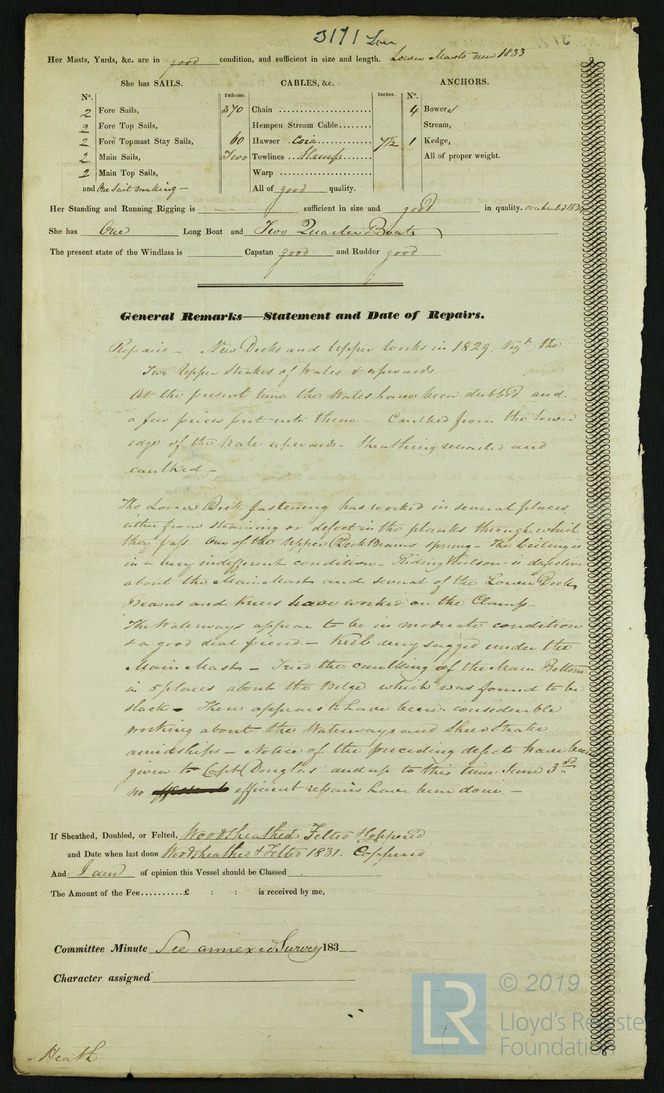 3171 Lon
Her Masts, Yards, &c. are in good condition, and sufficient in size and length. Lower Masts new 1833
She has SAILS.
CABLES, &c.
ANCHORS.
Nº.
Fathoms.
Inches.
Nº.
2 Fore Sails,
370 Chain
4 Bowers
2 Fore Top Sails,
Hempen Stream Cable
Stream,
2 Fore Topmast Stay Sails,
60 Hawser Coia 7½
1 Kedge,
2 Main Sails,
Two Towlines Hemp
All of proper weight.
2 Main Top Sails,
Warp
and One Suit making
All of good quality.
Her Standing and Running Rigging is sufficient in size and good in quality. overhauled
She has One Long Boat and Two Quarter Boats
The present state of the Windlass is Capstan good and Rudder good
General Remarks—Statement and Date of Repairs.
Repairs – New Decks and Upper works in 1829. Vizt the
Two Upper Strakes of Wales & upwards
At the present time the Wales have been dubbed and
a few pieces put into them – Caulked from the lower
edge of the Wale upwards – Sheathing and
caulked –
The Lower Deck fastening has worked in several places
either from straining or defect in the planks through which
they pass One of the Upper Deck Beams sprung – The Ceiling is
in a very indifferent condition – Riding Keelson is defective
about the Main Mast and several of the Lower Deck
Beams and Knees have worked on the Clamp –
The Waterways appear to be in moderate condition
& a good deal pieced – Keel very sagged under the
Main Mast – Tried the caulking of the Main Bottom
in 5 places about the Bilge which was found to be
slack – There appears to have been considerable
working about the Waterways and Sheer Strake
amidships – Notice of the preceding defects have been
given to Capt Douglas and up to this time June 3rd
no efficient repairs have been done –
If Sheathed, Doubled, or Felted, Wood Sheathed Felted & Coppered
and Date when last done Wood Sheathed & Felted 1831. Coppered
And I am of opinion this Vessel should be Classed
The Amount of the Fee..........£ : : is received by me,
Committee Minute See annexed Survey 183
Character assigned
Heath
LR
© 2019
Lloyd's Register
Foundation